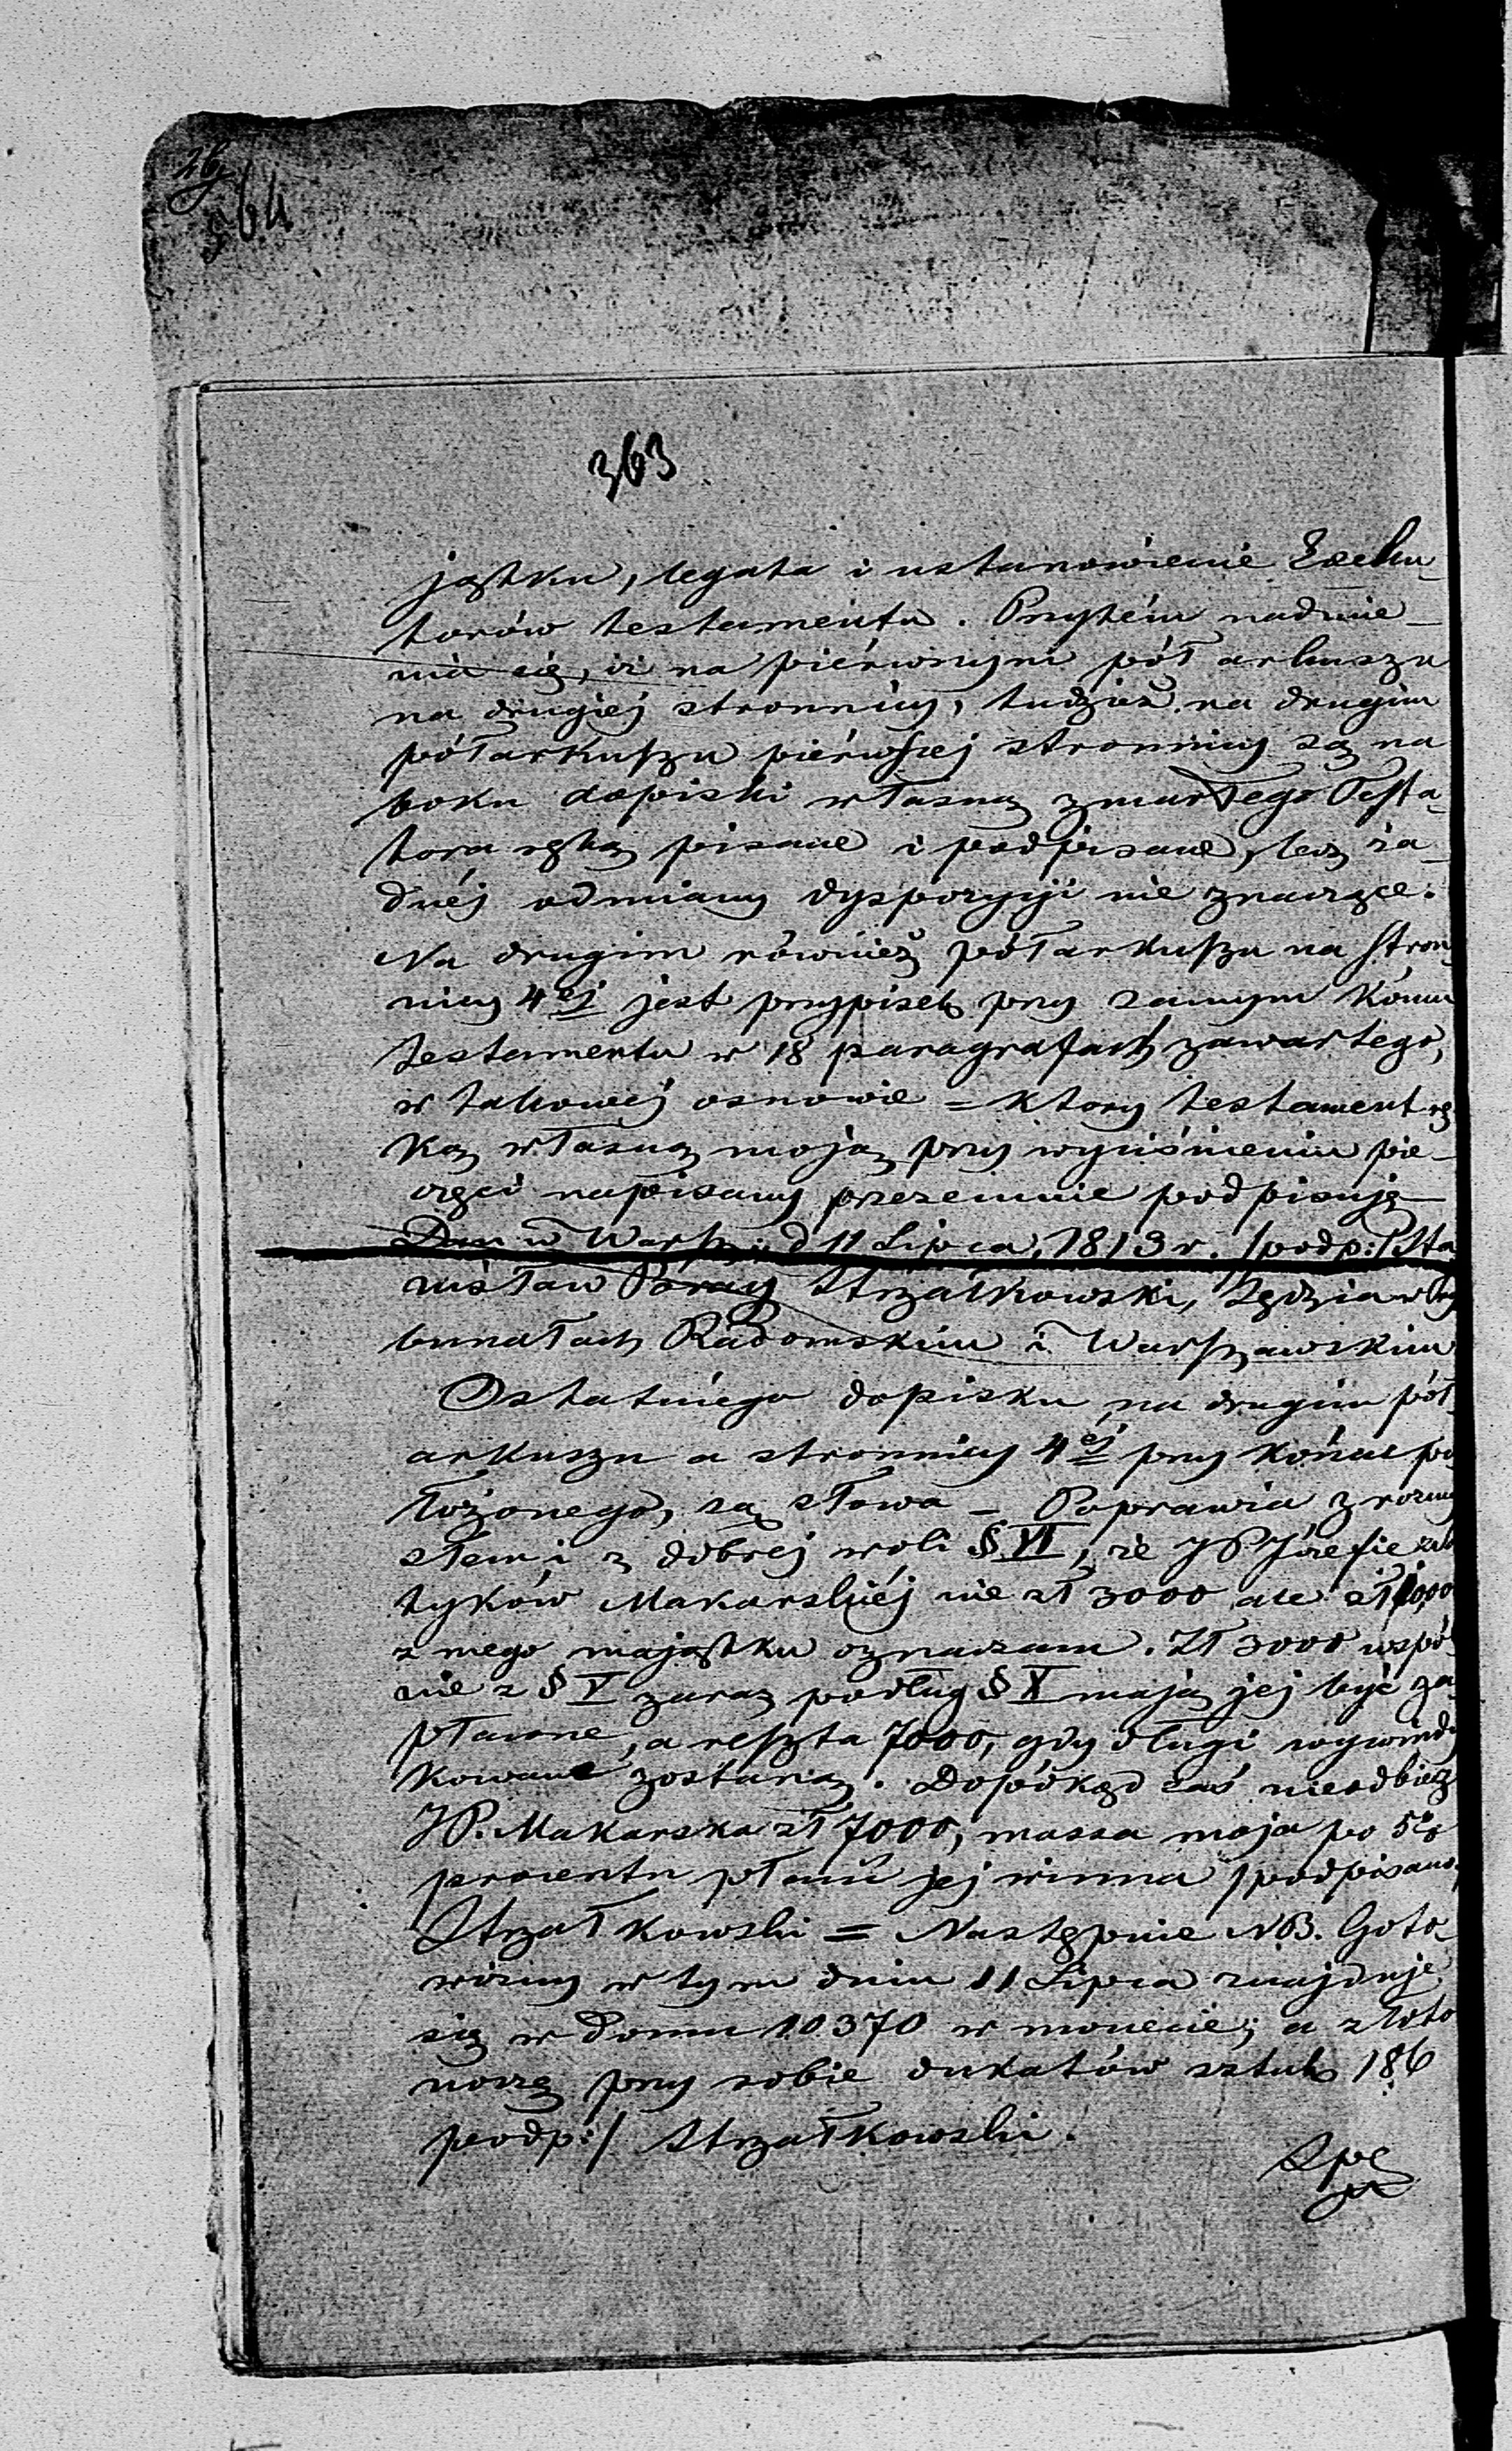 364
363
jątku, legata i ustanowienie Exeku-
torów testamentu. Przytém nadmie-
nia się, iż na pierwszym pół arkuszu
na drugiéj stronnicy, tudzież na drugim
półarkuszu pierwszej stronnicy są na
boku dopiski własną zmarłego Testa-
tora ręką pisane i podpisane, lecz ża-
dnéj odmiany dyspozycyi nie znaczące.
Na drugim również półarkuszu na stron
nicy 4ej jest przypisek przy samym końcu
testamentu w 18 paragrafach zawartego,
w takowéj osnowie = który testament rę
ką własną moją przy wyciśnieniu pie-
częci napisany przezemnie podpisuję -
Dan w Warsz: d 11 Lipca 1813 r. /podp:/ Sta
nisław Poray Strzałkowski, Sędzia w Try
bunałach Radomskim i Warszawskim
Ostatniego dopisku na drugim pół
arkuszu a stronnicy 4ej przy końcu po
łożonego, są słowa - Poprawia z rozmy
słem i z dobrej woli § VI, że JP Józefie
tyków Makarskiéj nie zł 3000 ale zł 10,000
z mego majątku oznaczam. Zł 3000 wspól
nie z § V zaraz podług § X mają jej być za
płacone, a reszta 7000, gdy długi wywindy
kowane zostaną. Dopókąd zaś nieodbierze
JP. Makarska zł 7000, massa moja po 5%
procentu płacić jej winna /podpisano/
Strzałkowski = Następnie NB. Goto-
wizny w tym dniu 11 Lipca znajduje
się w domu 10.370 w monecie; a złoto
noszę przy sobie dukatów sztuk 186
podp:/ Strzałkowski.